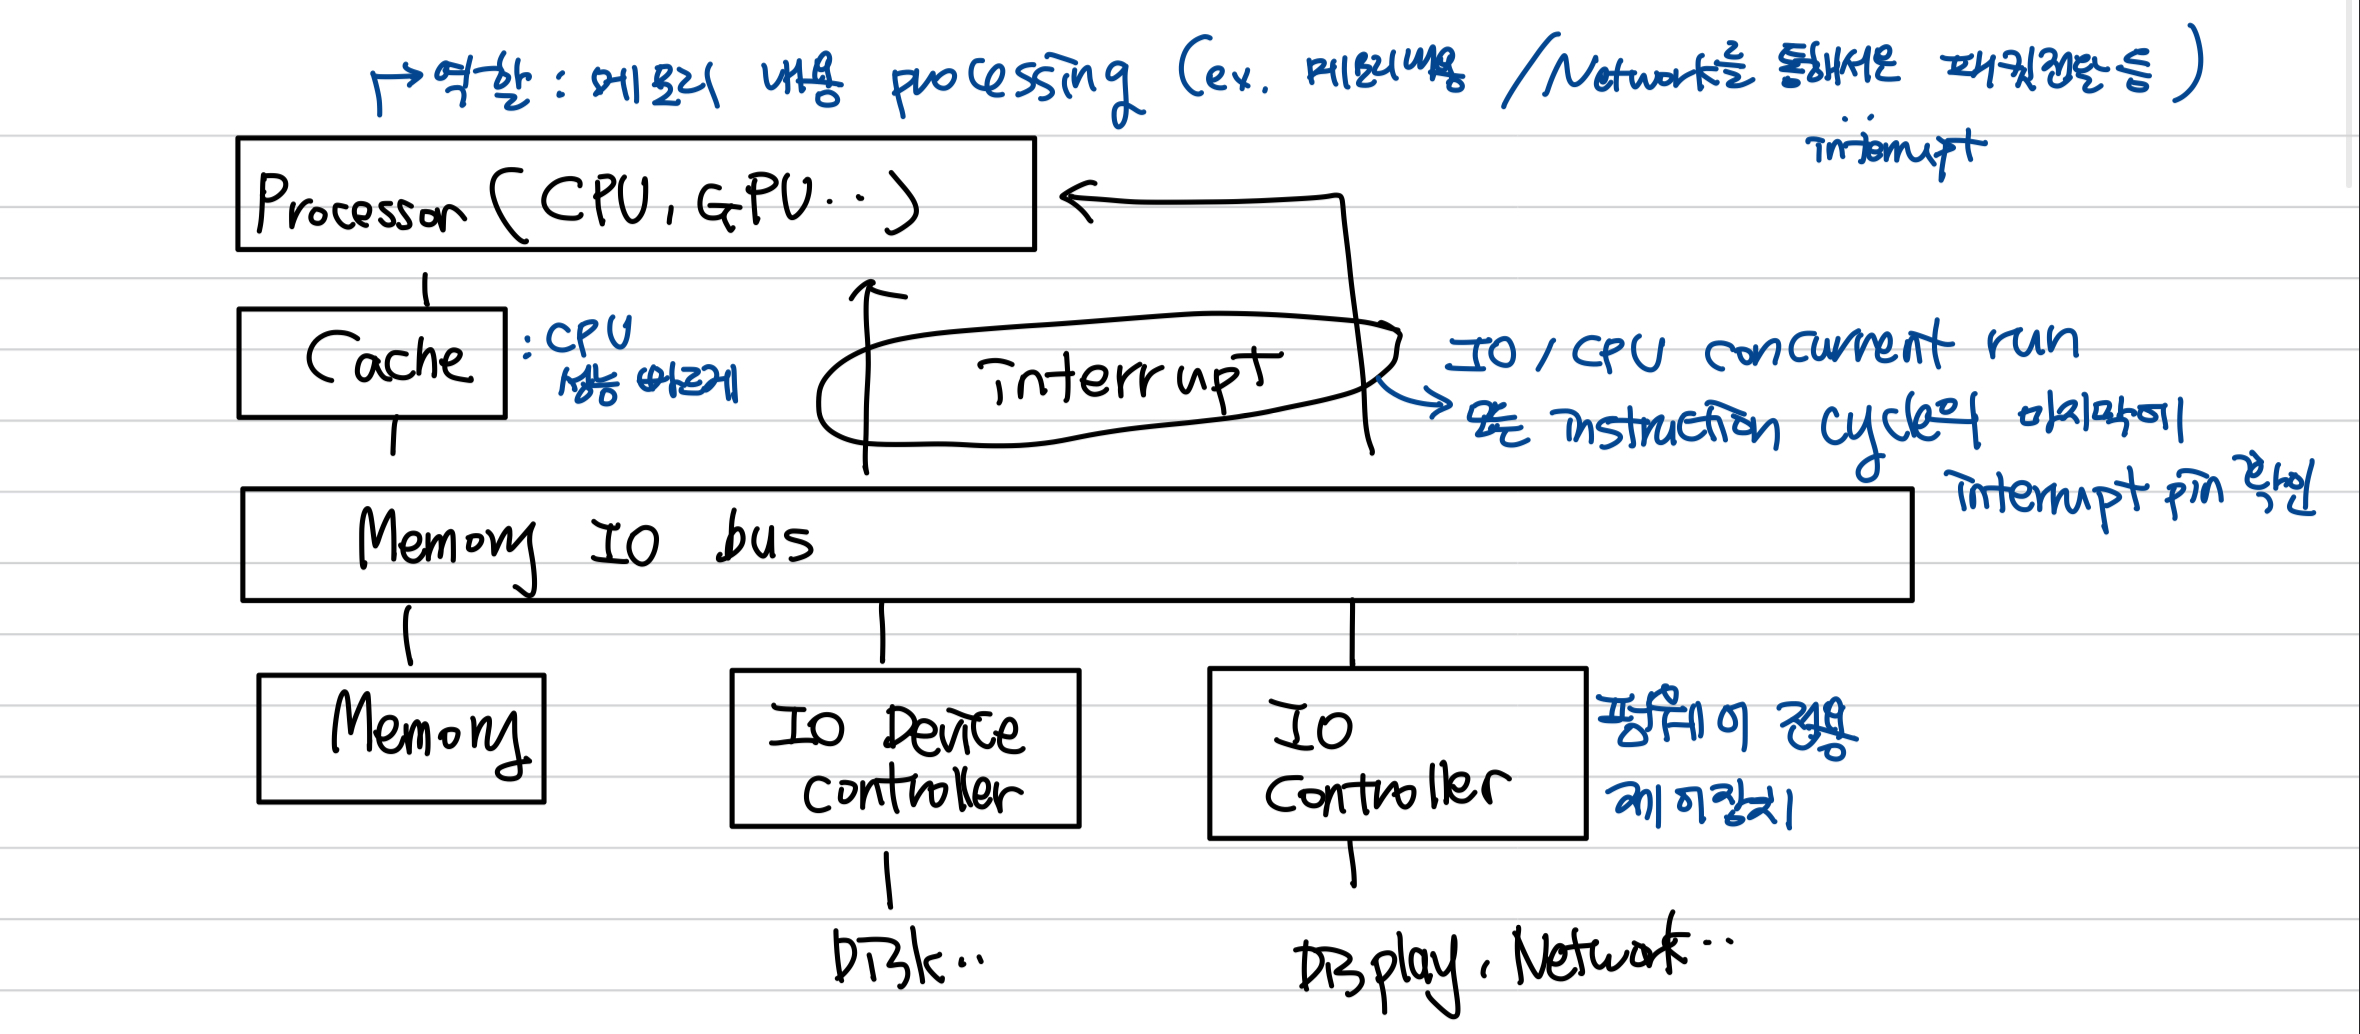 역할 : 메모리 내용 processing (ex. 메모리내용 / Network을 통해서온 패킷전달 등)
interrupt
Processor (CPU, GPU..)
Cache
: CPU
성능
interrupt
IO / CPU concurrent run
모든 instruction cycle의 마지막에
interrupt pin 확인
Memory IO bus
Memory
IO Device
controller
IO
Controller
전용
제어장치
Disk..
Display, Network..